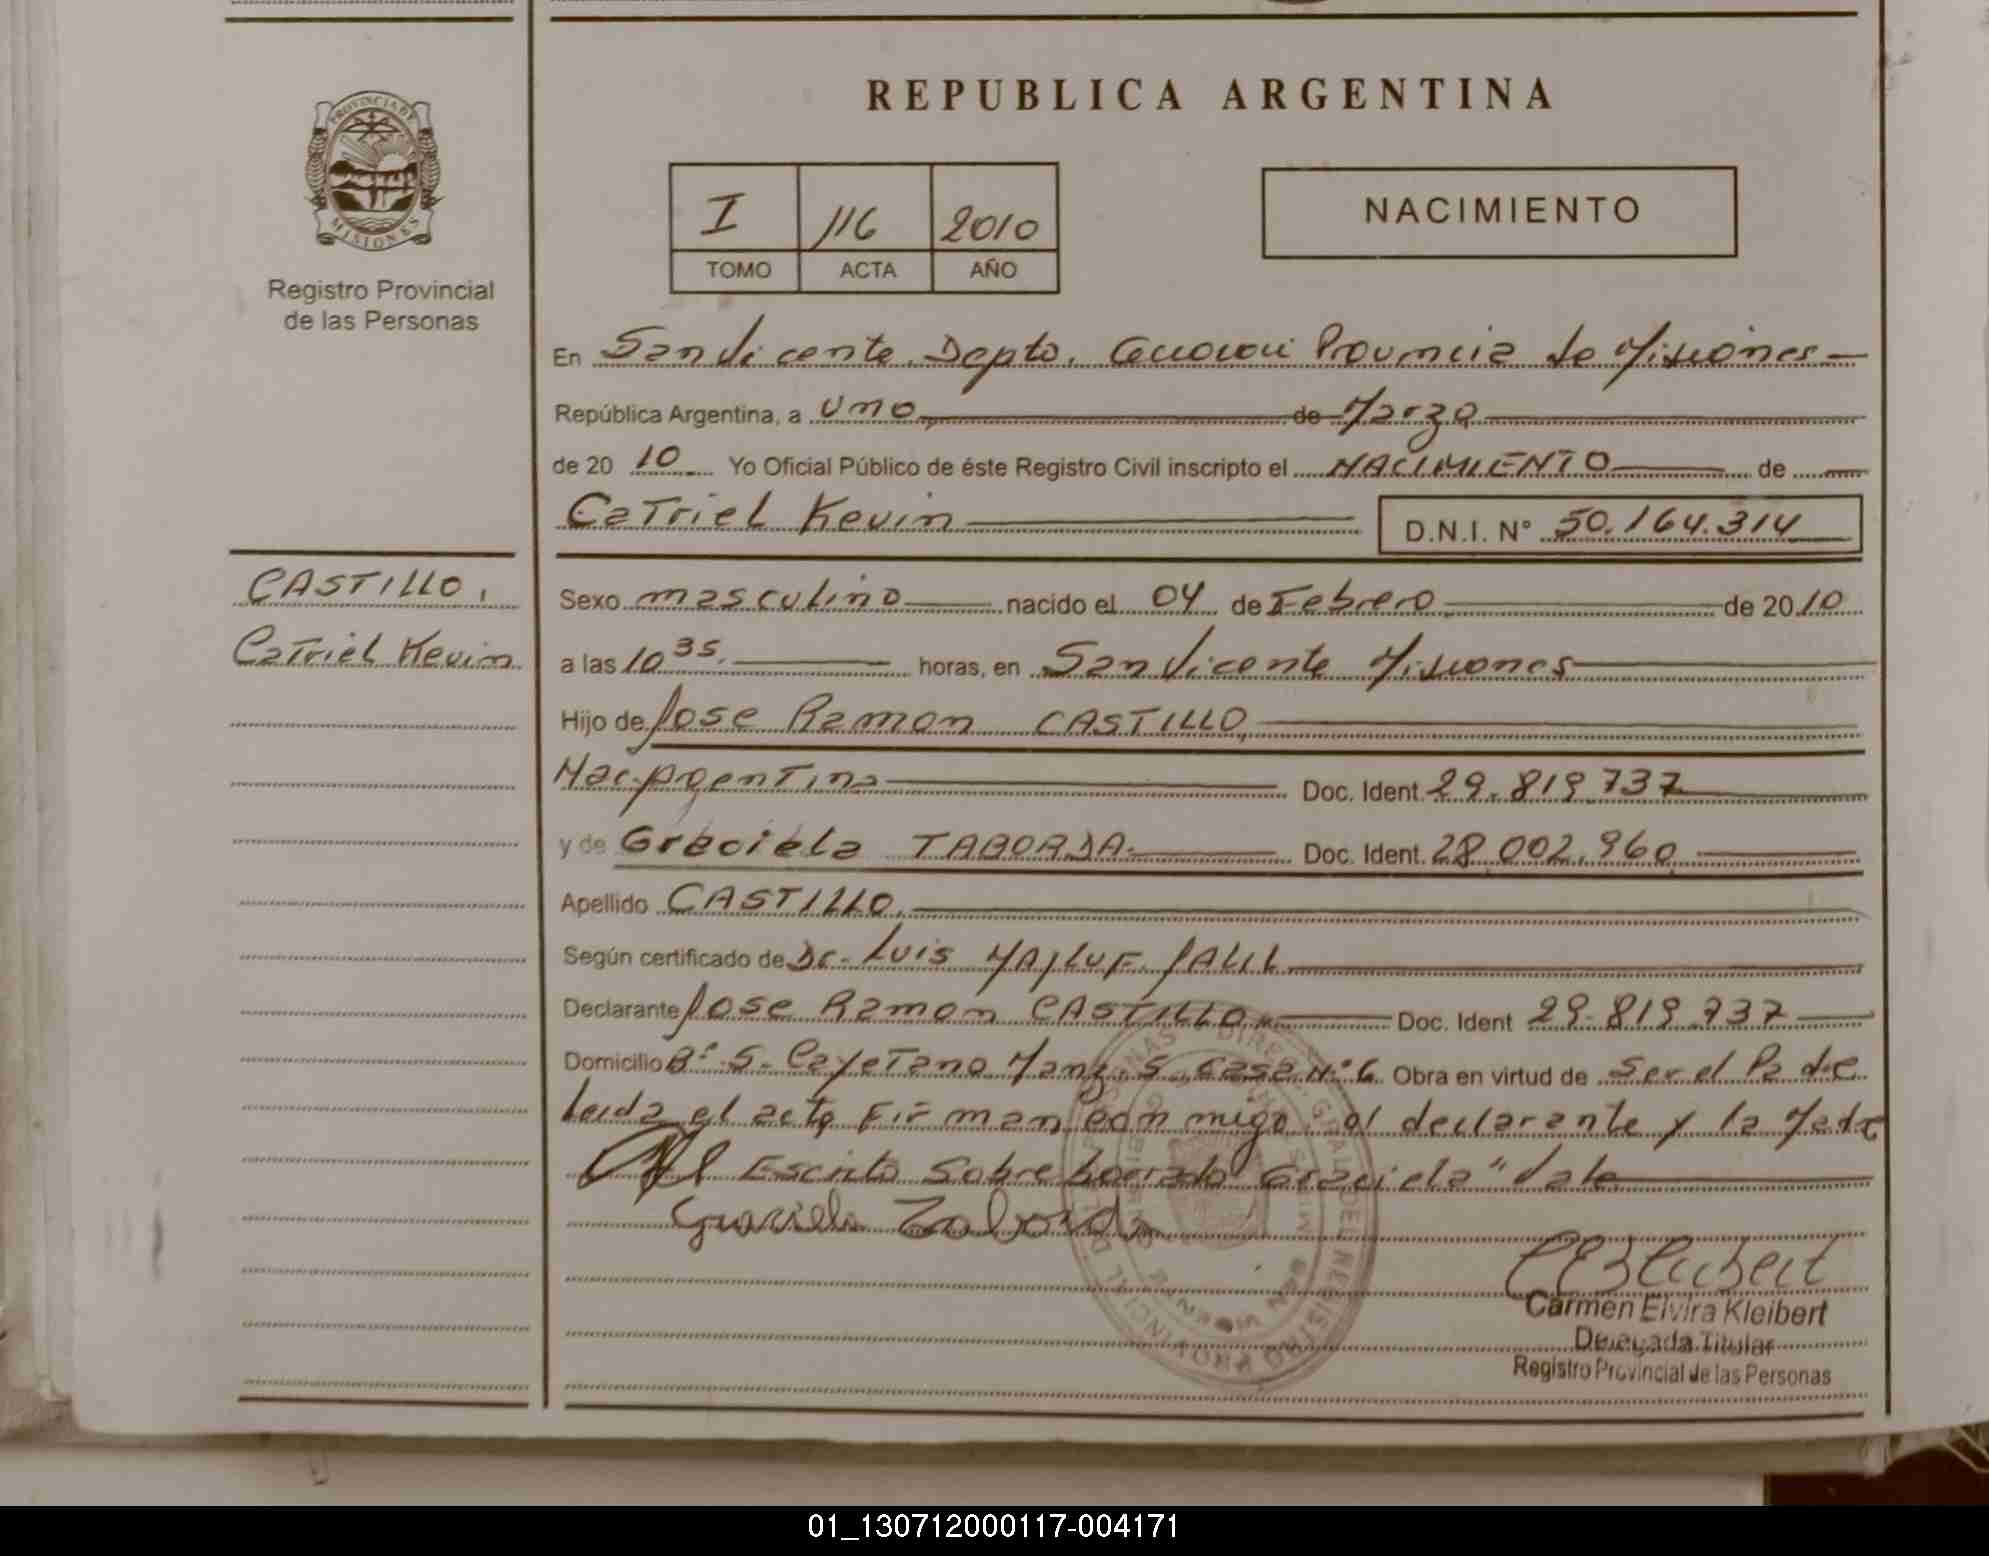 REPUBLICA ARGENTINA
PROVINCIA DE MISIONES
Registro Provincial
de las Personas
I 116 2010
TOMO ACTA AÑO
NACIMIENTO
En San Vicente. Depto. Guaraní Provincia de Misiones
República Argentina, a uno de Marzo
de 2010 Yo Oficial Público de éste Registro Civil inscripto el NACIMIENTO de
Catriel Kevin D.N.I. N° 50.164.314
CASTILLO,
Catriel Kevin
Sexo masculino nacido el 04 de Febrero de 2010
a las 10 35. horas, en San Vicente Misiones
Hijo de Jose Ramon CASTILLO,
Nac. Argentina Doc. Ident. 29.819.737
y de Graciela TABORDA. Doc. Ident. 28.002.960
Apellido CASTILLO,
Según certificado de Dr. Luis MAJLUF
Declarante Jose Ramon CASTILLO Doc. Ident 29.819.737
Domicilio B° S. Cayetano Manz. 5 casa N° 6 Obra en virtud de Ser el Padre
leida el acta Firman conmigo el declarante y la Madre
Escrito Sobre borrado Graciela" Vale
Graciela Taborda
Carmen Elvira Kleibert
Delegada Titular
Registro Provincial de las Personas
01_130712000117-004171